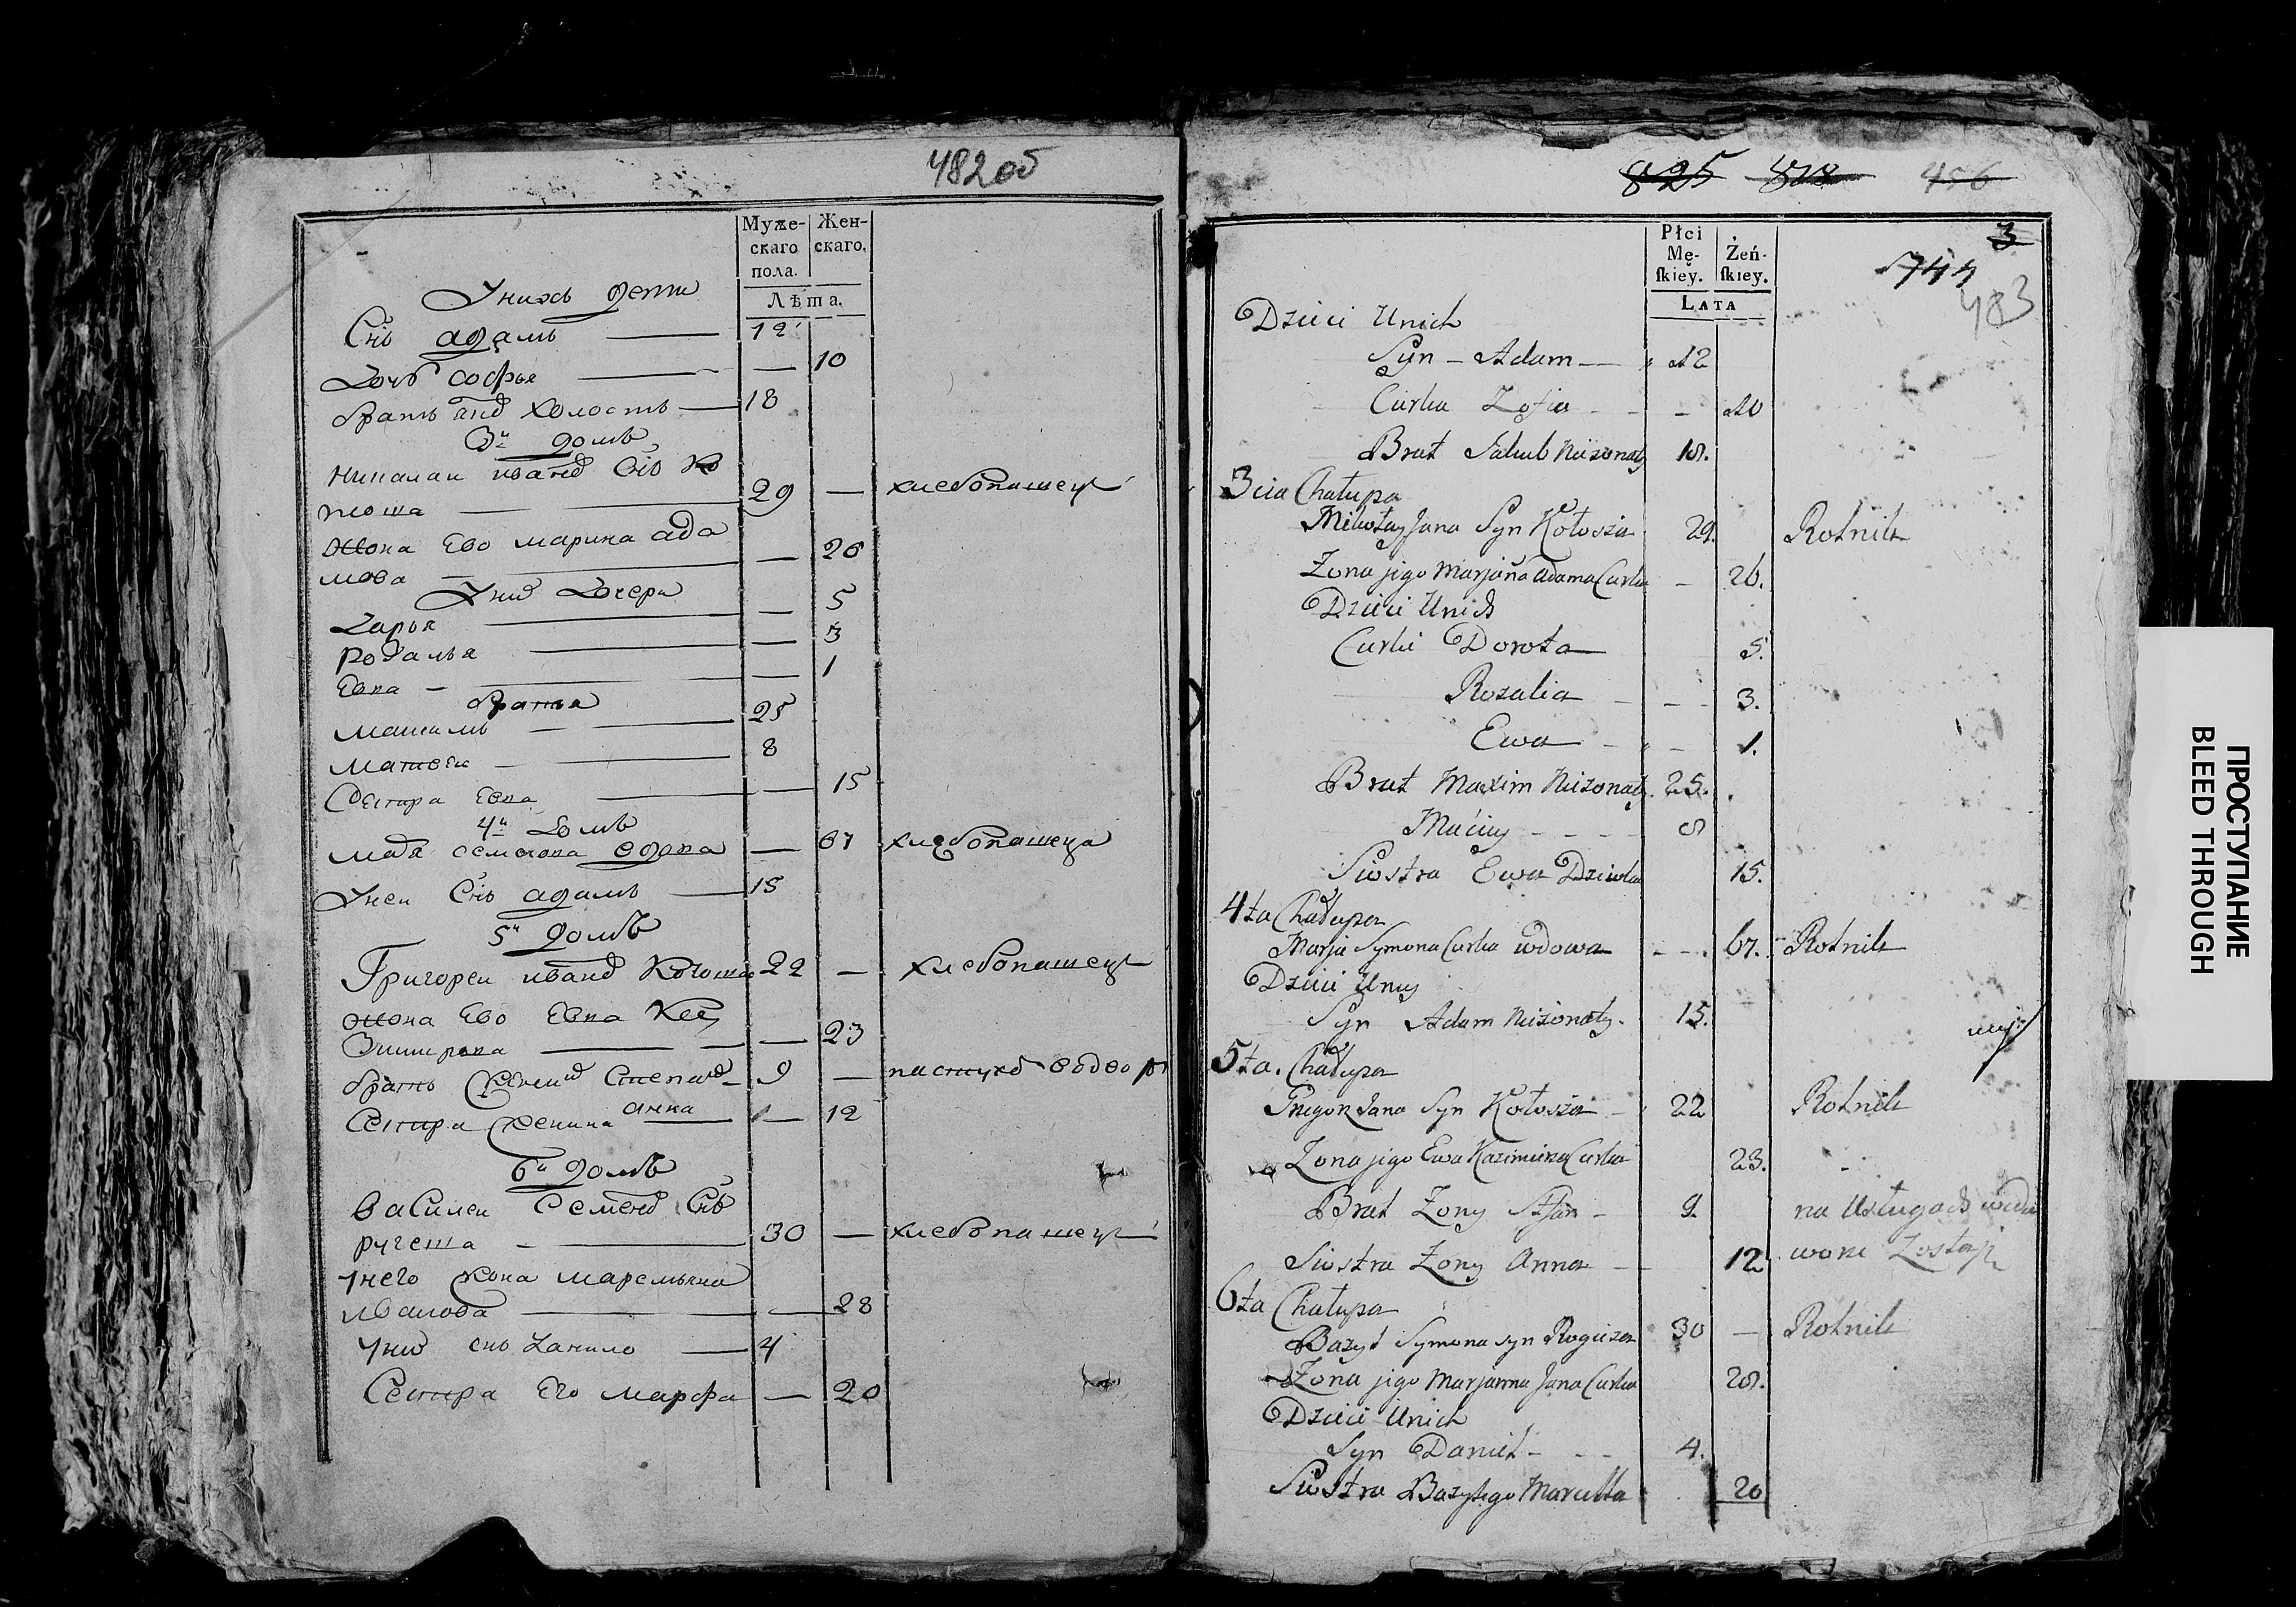 482 об
Муже-
скаго
пола.
Жен-
скаго.
Лѣта.
Унихъ дети
Снъ адамъ — 12
Дочь софья — — 10
братъ холостъ — 18
3й домъ
николаи иванов Снъ Ко
тоша — 29 — хлебопашецъ
жона Ево марина ада
мова — — 26
Дочери
Дарья — — 5
розалья — — 3
Евка — — 1
братья
макимъ — 25
матвеи — 8
Сестра Евка — — 15
4й домъ
семонова вдова — 67 хлебопашеца
Унеи Снъ адамъ — 15
5й домъ
Григореи иванов Котоша 22 — хлебопашецъ
жона Ево Евка
— — 23
братъ Степан — 9 — пастухъ
Сестра анка — 12
6й домъ
василеи Семенов Снъ
ругеша — 30 — хлебопашецъ
унего жона марьяна
иванова — — 28
снъ Данило — 4
Сестра Его марфа — 20
825 456
Płci
Mę-
ſkiey.
Żeń-
ſkiey.
LATA
3
744
483
Dzieci Unich
Syn – Adam — 12
Curka Zofia - - - 10
Brat Jakub Nieżonaty 18.
3cia Chałupa
Mikołay Jana Syn Kołosza 29. Rolnik
Żona jigo Marjana Adama Curka - 26.
Dzieci Unich
Curki Dorota 5.
Rozalia - - - 3.
Ewa - - - 1.
Brat Maxim Nieżonaty 25.
Maciey - - - 8
Siostra Ewa Dziwka 15.
4ta Chałupa
Marja Symona Curka wdowa - - - 67. Rolnik
Dzieci Uniey
Syn Adam Nieżonaty. 15.
5ta. Chałupa
Gregorz Jana Syn Kołosza 22 Rolnik
Żona jigo Ewa Kazimierza Curka 23.
Brat Żony - 9. na Usługach
Siostra Żony Anna - 12
6ta Chałupa
Bazyl Symona syn Rogieza 30 — Rolnik
Żona jigo Marjanna Jana Curka 28.
Dzieci Unich
Syn Daniel - - - 4.
Siostra Bazylego 20
ПРОСТУПАНИЕ
BLEED THROUGH